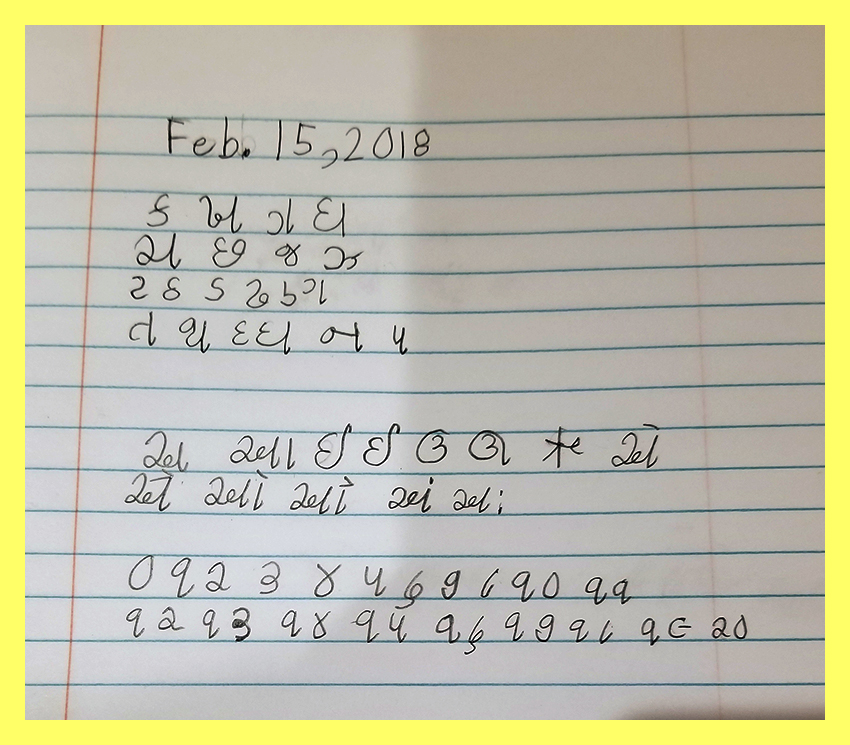 Feb. 15, 2018
ક ખ ગ ઘ
ચ છ જ ઝ
ટ ઠ ડ ઢ ણ
ત થ દ ધ ન પ
અ આ ઇ ઈ ઉ ઊ ઋ એ
ઐ ઓ ઔ અં અઃ
૦ ૧ ૨ ૩ ૪ ૫ ૬ ૭ ૮ ૧૦ ૧૧
૧૨ ૧૩ ૧૪ ૧૫ ૧૬ ૧૭ ૧૮ ૧૯ ૨૦